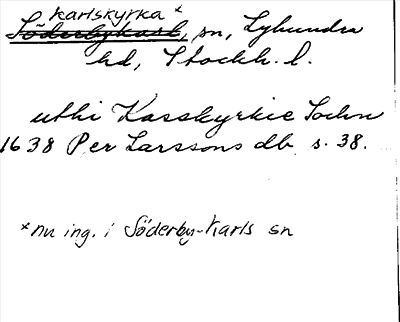 Karlskyrka *
Söderbykarl, sn, Lyhundra
hd, Stockh. l.
uthi Kasskyrkie Sochn
1638 Per Larssons db s. 38.
*nu ing. i Söderby-Karls sn